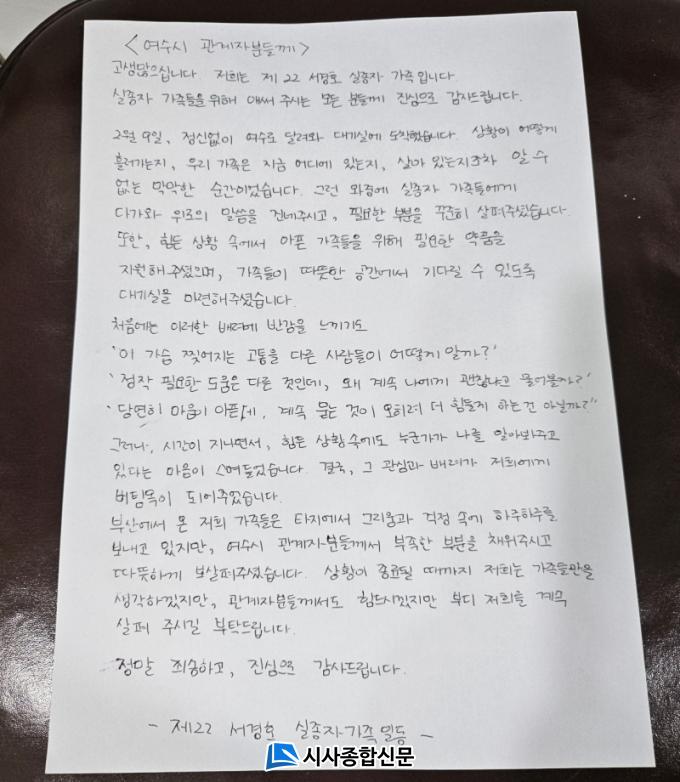 <여수시 관계자분들께>
고생많으십니다. 저희는 제 22 서경호 실종자 가족입니다.
실종자 가족들을 위해 애써 주시는 모든 분들께 진심으로 감사드립니다.
2월 9일, 정신없이 여수로 달려와 대기실에 도착했습니다. 상황이 어떻게
흘러가는지, 우리 가족은 지금 어디에 있는지, 살아 있는지조차 알 수
없는 막막한 순간이었습니다. 그런 와중에 실종자 가족들에게
다가와 위로의 말씀을 건네주시고, 필요한 부분을 꾸준히 살펴주셨습니다.
또한, 힘든 상황 속에서 아픈 가족들을 위해 필요한 약품을
지원해 주셨으며, 가족들이 따뜻한 공간에서 기다릴 수 있도록
대기실을 마련해주셨습니다.
처음에는 이러한 배려에 반감을 느끼기도
'이 가슴 찢어지는 고통을 다른 사람들이 어떻게 알까?'
'정작 필요한 도움은 다른 것인데, 왜 계속 나에게 괜찮냐고 물어볼까?'
'당연히 마음이 아픈데, 계속 묻는 것이 오히려 더 힘들게 하는 건 아닐까?'
그러나, 시간이 지나면서, 힘든 상황 속에도 누군가가 나를 알아봐주고
있다는 마음이 스며들었습니다. 결국, 그 관심과 배려가 저희에게
버팀목이 되어주었습니다.
부산에서 온 저희 가족들은 타지에서 그리움과 걱정 속에 하루하루를
보내고 있지만, 여수시 관계자분들께서 부족한 부분을 채워주시고
따뜻하게 보살펴주셨습니다. 상황이 종료될 때까지 저희는 가족들만을
생각하겠지만, 관계자분들께서도 힘드시겠지만 부디 저희를 계속
살펴 주시길 부탁드립니다.
정말 죄송하고, 진심으로 감사드립니다.
- 제22 서경호 실종자가족 일동 -
시사종합신문